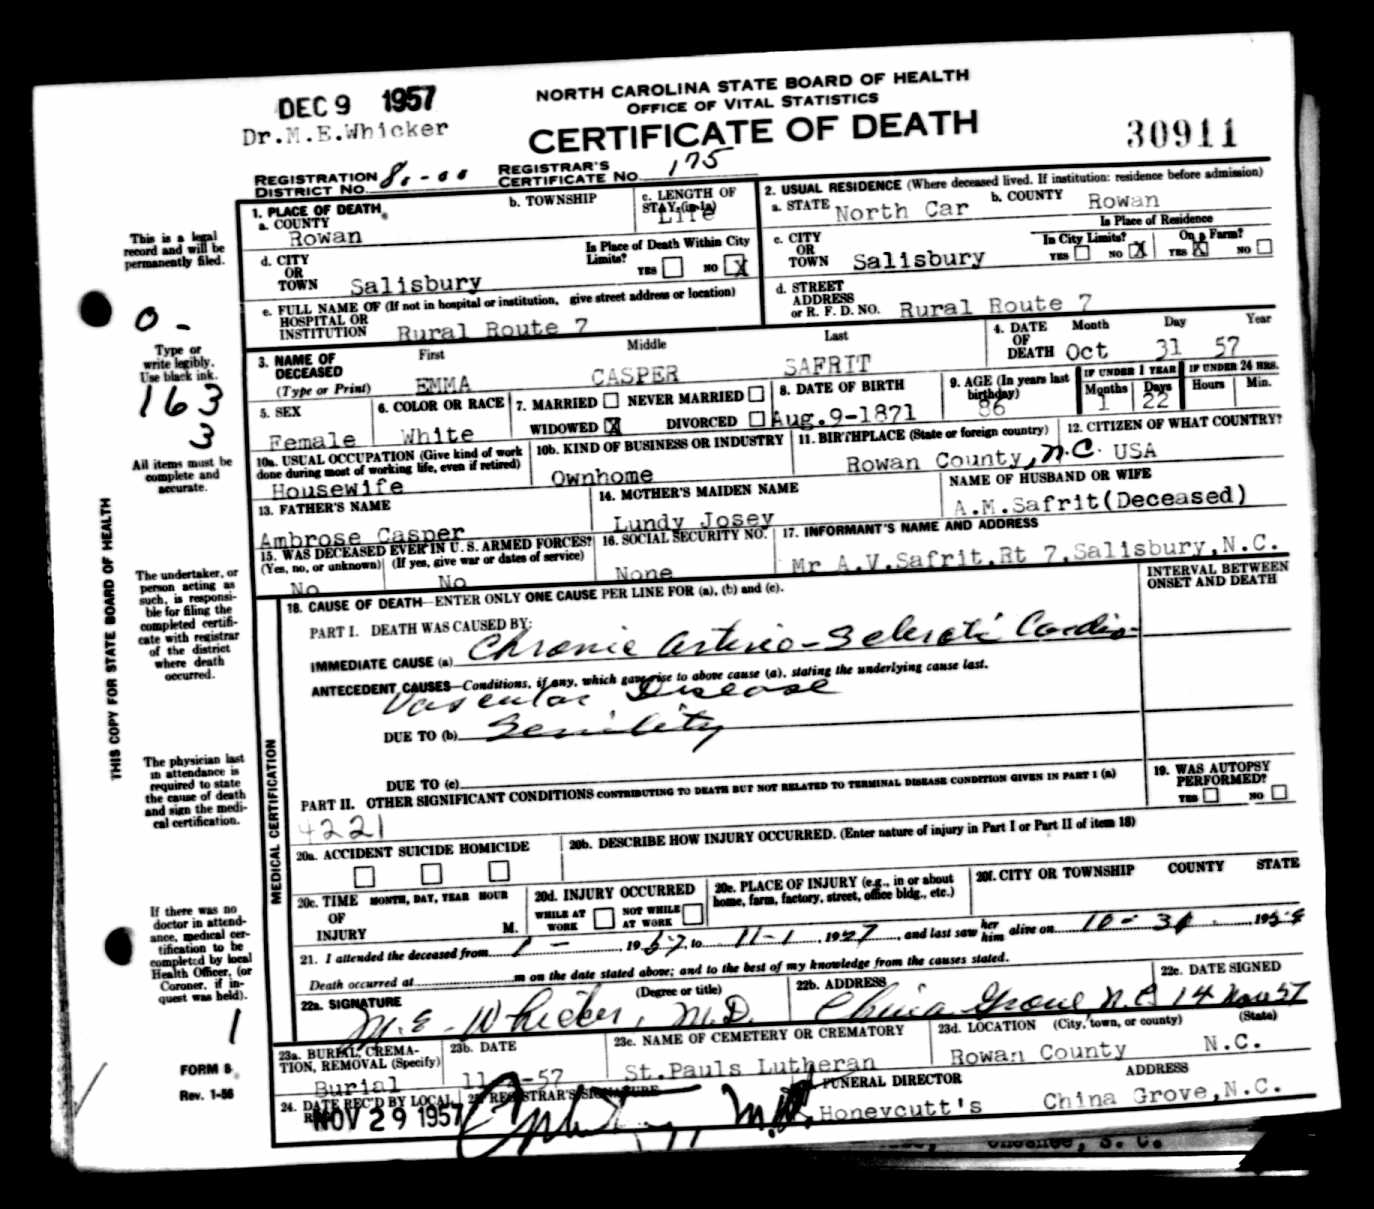 DEC 9 1957
Dr.M.E.Whicker
NORTH CAROLINA STATE BOARD OF HEALTH
OFFICE OF VITAL STATISTICS
CERTIFICATE OF DEATH
30911
REGISTRATION DISTRICT NO.
REGISTRAR'S CERTIFICATE NO. 175
1. PLACE OF DEATH
a. COUNTY
Rowan
b. TOWNSHIP
c. LENGTH OF STAY (in 1a)
Life
2. USUAL RESIDENCE (Where deceased lived. If institution: residence before admission)
a. STATE North Car
b. COUNTY Rowan
d. CITY OR TOWN Salisbury
Is Place of Death Within City Limits?
YES NO X
c. CITY OR TOWN Salisbury
Is Place of Residence
In City Limits? YES NO X
On a Farm? YES X NO
e. FULL NAME OF (If not in hospital or institution, give street address or location)
HOSPITAL OR INSTITUTION Rural Route 7
d. STREET ADDRESS or R. F. D. NO. Rural Route 7
3. NAME OF DECEASED (Type or Print)
First Middle Last
EMMA CASPER SAFRIT
4. DATE OF DEATH Month Day Year
Oct 31 57
5. SEX
Female
6. COLOR OR RACE
White
7. MARRIED NEVER MARRIED
WIDOWED X DIVORCED
8. DATE OF BIRTH
Aug.9-1871
9. AGE (In years last birthday)
86
IF UNDER 1 YEAR
Months Days
1 22
IF UNDER 24 HRS.
Hours Min.
10a. USUAL OCCUPATION (Give kind of work done during most of working life, even if retired)
Housewife
10b. KIND OF BUSINESS OR INDUSTRY
Ownhome
11. BIRTHPLACE (State or foreign country)
Rowan County, N.C.
12. CITIZEN OF WHAT COUNTRY?
USA
13. FATHER'S NAME
Ambrose Casper
14. MOTHER'S MAIDEN NAME
Lundy Josey
NAME OF HUSBAND OR WIFE
A.M.Safrit(Deceased)
15. WAS DECEASED EVER IN U. S. ARMED FORCES?
(Yes, no, or unknown) (If yes, give war or dates of service)
No No
16. SOCIAL SECURITY NO.
None
17. INFORMANT'S NAME AND ADDRESS
Mr A.V.Safrit,Rt 7,Salisbury,N.C.
MEDICAL CERTIFICATION
18. CAUSE OF DEATH—ENTER ONLY ONE CAUSE PER LINE FOR (a), (b) and (c).
INTERVAL BETWEEN ONSET AND DEATH
PART I. DEATH WAS CAUSED BY:
IMMEDIATE CAUSE (a) Chronic arterio-Sclerotic Cardio-
ANTECEDENT CAUSES—Conditions, if any, which gave rise to above cause (a), stating the underlying cause last.
Vascular Disease
DUE TO (b) Senility
DUE TO (c)
PART II. OTHER SIGNIFICANT CONDITIONS CONTRIBUTING TO DEATH BUT NOT RELATED TO TERMINAL DISEASE CONDITION GIVEN IN PART I (a)
4221
19. WAS AUTOPSY PERFORMED?
YES NO
20a. ACCIDENT SUICIDE HOMICIDE
20b. DESCRIBE HOW INJURY OCCURRED. (Enter nature of injury in Part I or Part II of item 18)
20c. TIME OF INJURY MONTH, DAY, YEAR HOUR
M.
20d. INJURY OCCURRED
WHILE AT WORK NOT WHILE AT WORK
20e. PLACE OF INJURY (e.g., in or about home, farm, factory, street, office bldg., etc.)
20f. CITY OR TOWNSHIP COUNTY STATE
21. I attended the deceased from 1 - 1957, to 11-1, 1957, and last saw her him alive on 10-31 19
Death occurred at m on the date stated above; and to the best of my knowledge from the causes stated.
22a. SIGNATURE (Degree or title)
M.E. Whicker, M.D.
22b. ADDRESS
China Grove N.C.
22c. DATE SIGNED
14 Nov 57
23a. BURIAL, CREMATION, REMOVAL (Specify)
Burial
23b. DATE
11 -57
23c. NAME OF CEMETERY OR CREMATORY
St.Pauls Lutheran
23d. LOCATION (City, town, or county) (State)
Rowan County N.C.
24. DATE REC'D BY LOCAL REG.
NOV 29 1957
25. REGISTRAR'S SIGNATURE
FUNERAL DIRECTOR
Honeycutt's
ADDRESS
China Grove,N.C.
THIS COPY FOR STATE BOARD OF HEALTH
This is a legal record and will be permanently filed.
0 -
Type or write legibly. Use black ink.
163
3
All items must be complete and accurate.
The undertaker, or person acting as such, is responsible for filing the completed certificate with registrar of the district where death occurred.
The physician last in attendance is required to state the cause of death and sign the medical certification.
If there was no doctor in attendance, medical certification to be completed by local Health Officer, (or Coroner, if inquest was held).
1
FORM 8
Rev. 1-56
S. C.